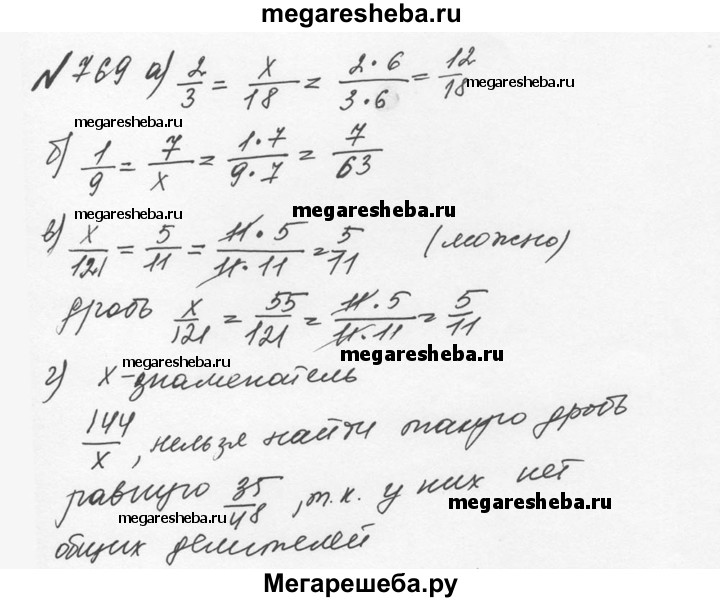 megaresheba.ru
№769 а) 2/3 = x/18 = 2·6/3·6 = 12/18
megaresheba.ru
megaresheba.ru
б) 1/9 = 7/x = 1·7/9·7 = 7/63
megaresheba.ru
megaresheba.ru
в) x/121 = 5/11 = 11·5/11·11 = 5/11 (можно)
дробь x/121 = 55/121 = 11·5/11·11 = 5/11
megaresheba.ru
megaresheba.ru
г) x-знаменатель
144/x, нельзя найти такую дробь
равную 35/48, т.к. у них нет
megaresheba.ru
megaresheba.ru
общих делителей
Мегарешеба.ру